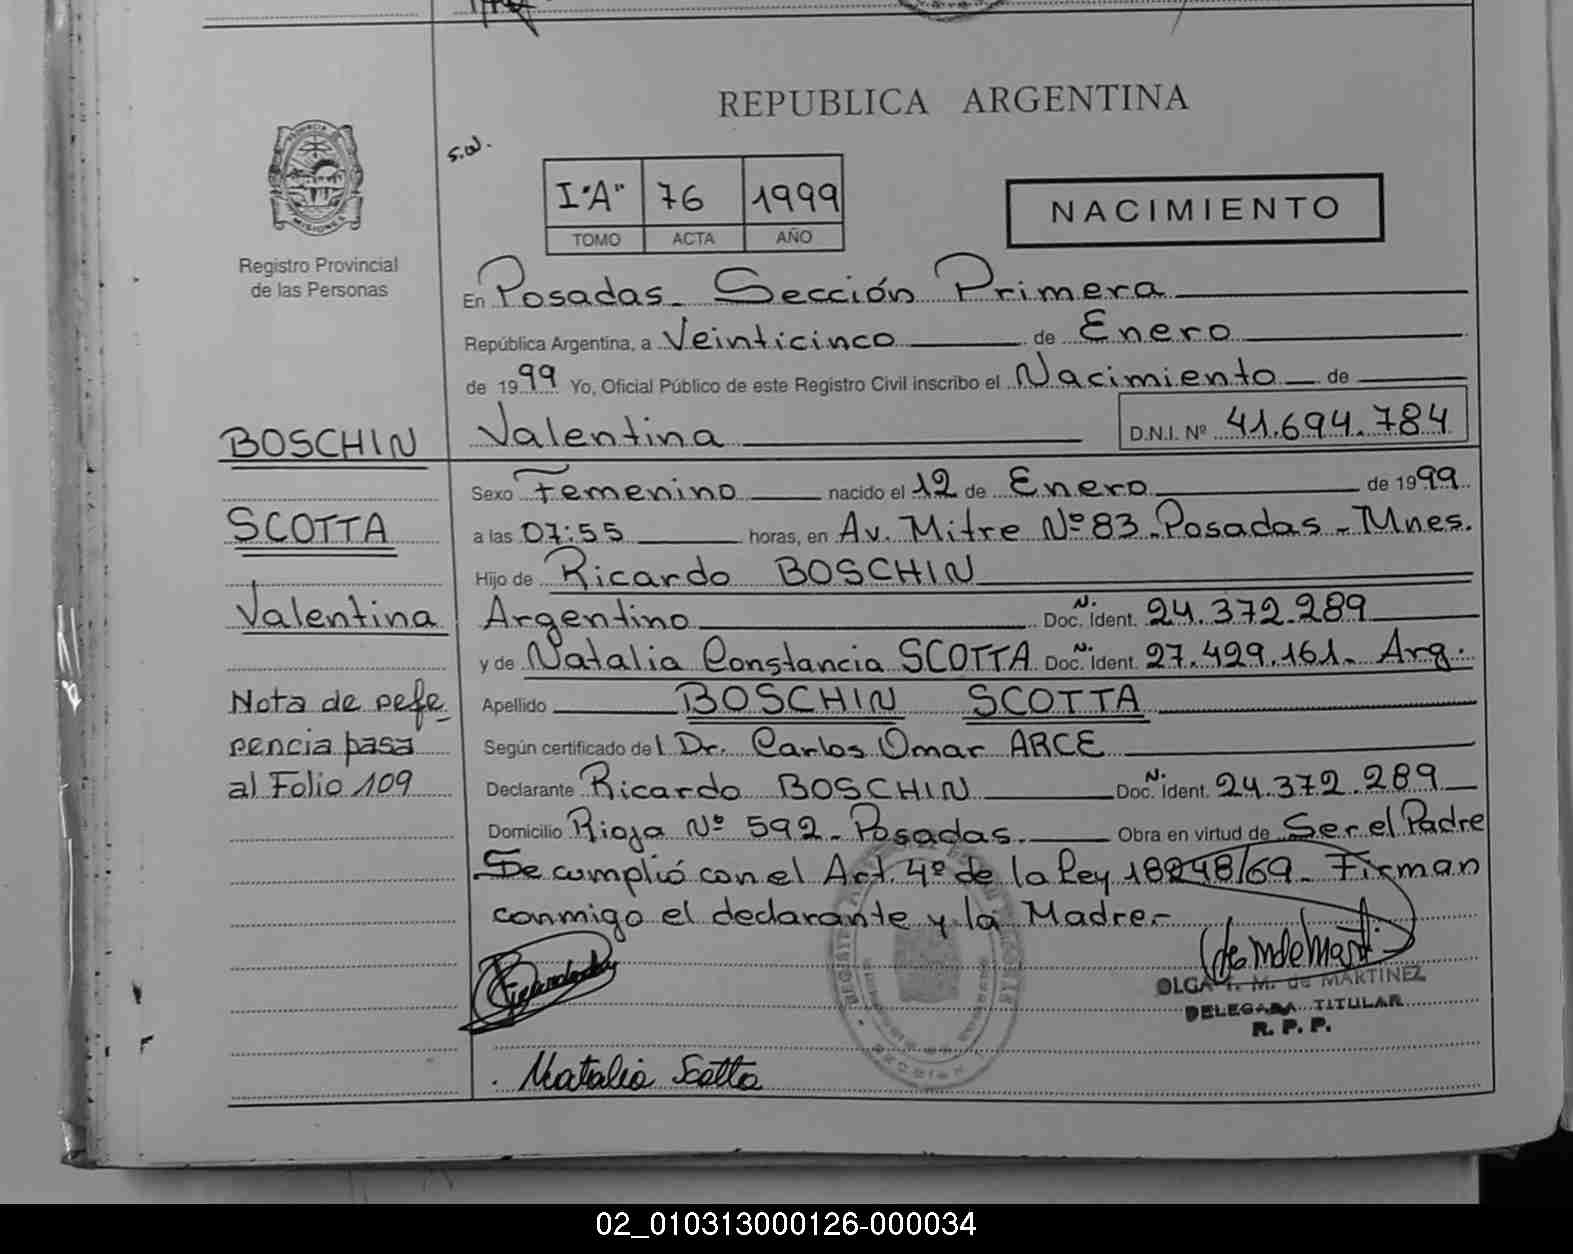 REPUBLICA ARGENTINA
s.w.
I "A" 76 1999
TOMO ACTA AÑO
NACIMIENTO
MISIONES
Registro Provincial
de las Personas
En Posadas - Sección Primera
República Argentina, a Veinticinco de Enero
de 1999 Yo, Oficial Público de este Registro Civil inscribo el Nacimiento de
BOSCHIN
SCOTTA
Valentina
Nota de refe
rencia pasa
al Folio 109
Valentina D.N.I. Nº 41.694.784
Sexo Femenino nacido el 12 de Enero de 1999
a las 07:55 horas, en Av. Mitre Nº 83 - Posadas - Mnes.
Hijo de Ricardo BOSCHIN
Argentino Doc. N. Ident. 24.372.289
y de Natalia Constancia SCOTTA Doc. N. Ident. 27.429.161 - Arg.
Apellido BOSCHIN SCOTTA
Según certificado del Dr. Carlos Omar ARCE
Declarante Ricardo BOSCHIN Doc. N. Ident. 24.372.289
Domicilio Rioja Nº 592 - Posadas. Obra en virtud de Ser el Padre
Se cumplió con el Art. 4º de la Ley 18248/69 - Firman
conmigo el declarante y la Madre.-
OLGA I. M. de MARTINEZ
DELEGADA TITULAR
R. P. P.
Natalia Scotta
02_010313000126-000034